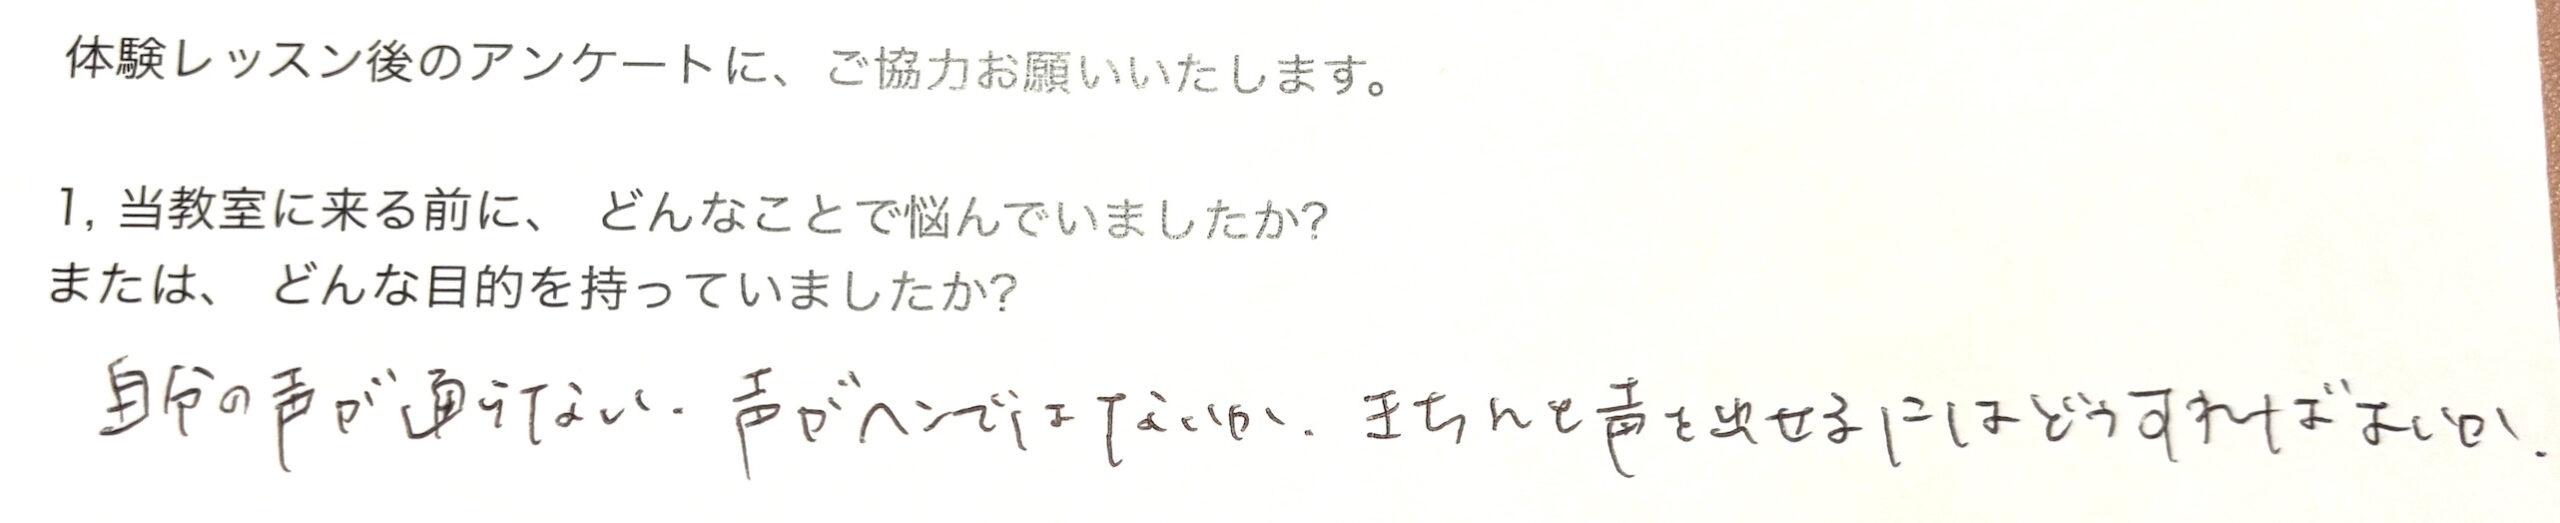 体験レッスン後のアンケートに、ご協力お願いいたします。
1, 当教室に来る前に、 どんなことで悩んでいましたか?
または、 どんな目的を持っていましたか?
自分の声が通らない. 声がヘンではないか. きちんと声を出せるにはどうすればよいか.